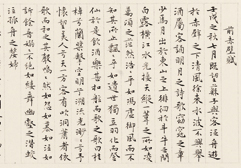 前赤壁賦
壬戌之秋七月既望蘇子與客泛舟遊
於赤壁之下清風徐來水波不興舉
酒屬客誦明月之詩歌窈窕之章少焉
月出於東山之上徘徊於斗牛之間
白露橫江水光接天縱一葦之所如凌
萬頃之茫然浩浩乎如馮虛御風而不
知其所止飄飄乎如遺世獨立羽化而登
仙於是飲酒樂甚扣舷而歌之歌曰桂
棹兮蘭槳擊空明兮泝流光渺渺兮予
懷望美人兮天一方客有吹洞簫者倚
歌而和之其聲嗚嗚然如怨如慕如泣如
訴餘音嫋嫋不絕如縷舞幽壑之潛蛟
泣孤舟之嫠婦